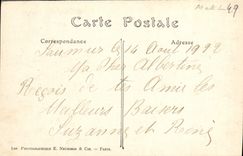 Mak L 49
Carte Postale
Correspondance
Adresse
Saumur le 14 Août 1922
Cher Albertine
Reçois de tes Amis les
Meilleurs Baisers
Suzanne et René
Les Photographies E. Neurdein & Cie. - Paris.